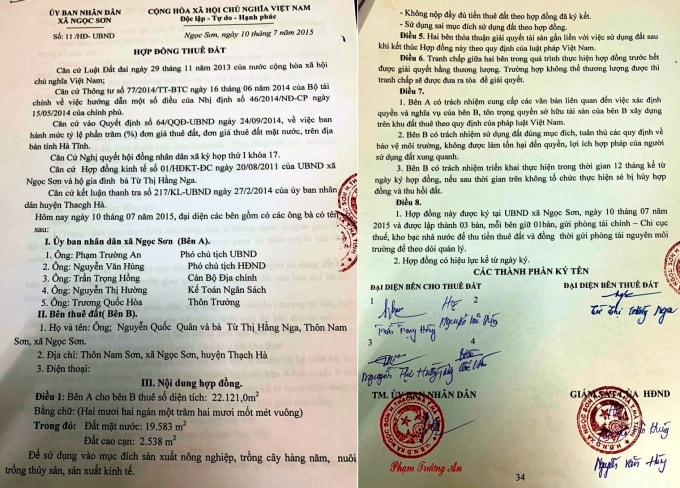 ỦY BAN NHÂN DÂN
XÃ NGỌC SƠN
CỘNG HÒA XÃ HỘI CHỦ NGHĨA VIỆT NAM
Độc lập - Tự do - Hạnh phúc
Số: 11/HĐ- UBND
Ngọc Sơn, ngày 10 tháng 7 năm 2015
HỢP ĐỒNG THUÊ ĐẤT
Căn cứ Luật Đất đai ngày 29 tháng 11 năm 2013 của nước cộng hòa xã hội
chủ nghĩa Việt Nam;
Căn cứ Thông tư số 77/2014/TT-BTC ngày 16 tháng 06 năm 2014 của Bộ tài
chính về việc hướng dẫn một số điều của Nhị định số 46/2014/NĐ-CP ngày
15/05/2014 của chính phủ.
Căn cứ vào Quyết định số 64/QQĐ-UBND ngày 24/09/2014, về việc ban
hành mức tỷ lệ phần trăm (%) đơn giá thuê đất, đơn giá thuê đất mặt nước, trên địa
bàn tỉnh Hà Tĩnh.
Căn Cứ Nghị quyết hội đồng nhân dân xã kỳ họp thứ I khóa 17.
Căn cứ Hợp đồng kinh tế số 01/HĐKT-ĐC ngày 20/08/2011 của UBND xã
Ngọc Sơn và hộ gia đình bà Từ Thị Hằng Nga.
Căn cứ kết luận thanh tra số 217/KL-UBND ngày 27/2/2014 của ủy ban nhân
dân huyện Thacgh Hà.
Hôm nay ngày 10 tháng 07 năm 2015, đại diện các bên gồm có các ông bà có tên
sau:
I. Ủy ban nhân dân xã Ngọc Sơn (Bên A).
1. Ông: Phạm Trường An Phó chủ tịch UBND
2. Ông: Nguyễn Văn Hùng Phó chủ tịch HĐND
3. Ông: Trần Trọng Hồng Cán Bộ Địa chính
4. Ông: Nguyễn Thị Hường Kế Toán Ngân Sách
5. Ông: Trương Quốc Hòa Thôn Trưởng
II. Bên thuê đất( Bên B).
1. Họ và tên: Ông; Nguyễn Quốc Quân và bà Từ Thị Hằng Nga, Thôn Nam
Sơn, xã Ngọc Sơn.
2. Địa chỉ: Thôn Nam Sơn, xã Ngọc Sơn, huyện Thạch Hà
3. Điện thoại:
III. Nội dung hợp đồng.
Điều 1: Bên A cho bên B thuê số diện tích: 22.121,0m²
Bằng chữ: (Hai mươi hai ngàn một trăm hai mươi mốt mét vuông)
Trong đó: Đất mặt nước: 19.583 m²
Đất cao cạn: 2.538 m²
Để sử dụng vào mục đích sản xuất nông nghiệp, trồng cây hàng năm, nuôi
trồng thủy sản, sản xuất kinh tế.
- Không nộp đầy đủ tiền thuê đất theo hợp đồng đã ký kết.
- Sử dụng sai mục đích sử dụng đất theo hợp đồng.
Điều 5. Hai bên thỏa thuận giải quyết tài sản gắn liền với việc sử dụng đất sau
khi kết thúc Hợp đồng này theo quy định của luật pháp Việt Nam.
Điều 6. Tranh chấp giữa hai bên trong quá trình thực hiện hợp đồng trước hết
được giải quyết bằng thương lượng. Trường hợp không thể thương lượng được thì
tranh chấp sẽ được đưa ra tòa để giải quyết.
Điều 7.
1. Bên A có trách nhiệm cung cấp các văn bản liên quan đến việc xác định
quyền và nghĩa vụ của bên B, tôn trọng quyền sở hữu tài sản của bên B xây dựng
trên khu đất thuê theo quy định của pháp luật Việt Nam.
2. Bên B có trách nhiệm sử dụng đất đúng mục đích, tuân thủ các quy định về
bảo vệ môi trường, không được làm tổn hại đến quyền, lợi ích hợp pháp của người
sử dụng đất xung quanh.
3. Bên B có trách nhiệm triển khai thực hiện trong thời gian 12 tháng kể từ
ngày ký hợp đồng, nếu sau thời gian trên không tổ chức thực hiện sẽ bị hủy hợp
đồng và thu hồi đất.
Điều 8.
1. Hợp đồng này được ký tại UBND xã Ngọc Sơn, ngày 10 tháng 07 năm
2015 và được lập thành 03 bản, mỗi bên giữ 01bản, gửi phòng tài chính – Chi cục
thuế, kho bạc nhà nước để thu tiền thuê đất và đồng thời gửi phòng tài nguyên môi
trường để theo dõi quản lý.
2. Hợp đồng có hiệu lực kể từ ngày ký.
CÁC THÀNH PHẦN KÝ TÊN
ĐẠI DIỆN BÊN CHO THUÊ ĐẤT
ĐẠI DIỆN BÊN THUÊ ĐẤT
1 2
Trần Trọng Hồng Nguyễn Văn Hùng
Từ Thị Hằng Nga
3 4
Nguyễn Thị Hường
TM. ỦY BAN NHÂN DÂN
Phạm Trường An
GIÁM SÁT CỦA HĐND
Nguyễn Văn Hùng
34